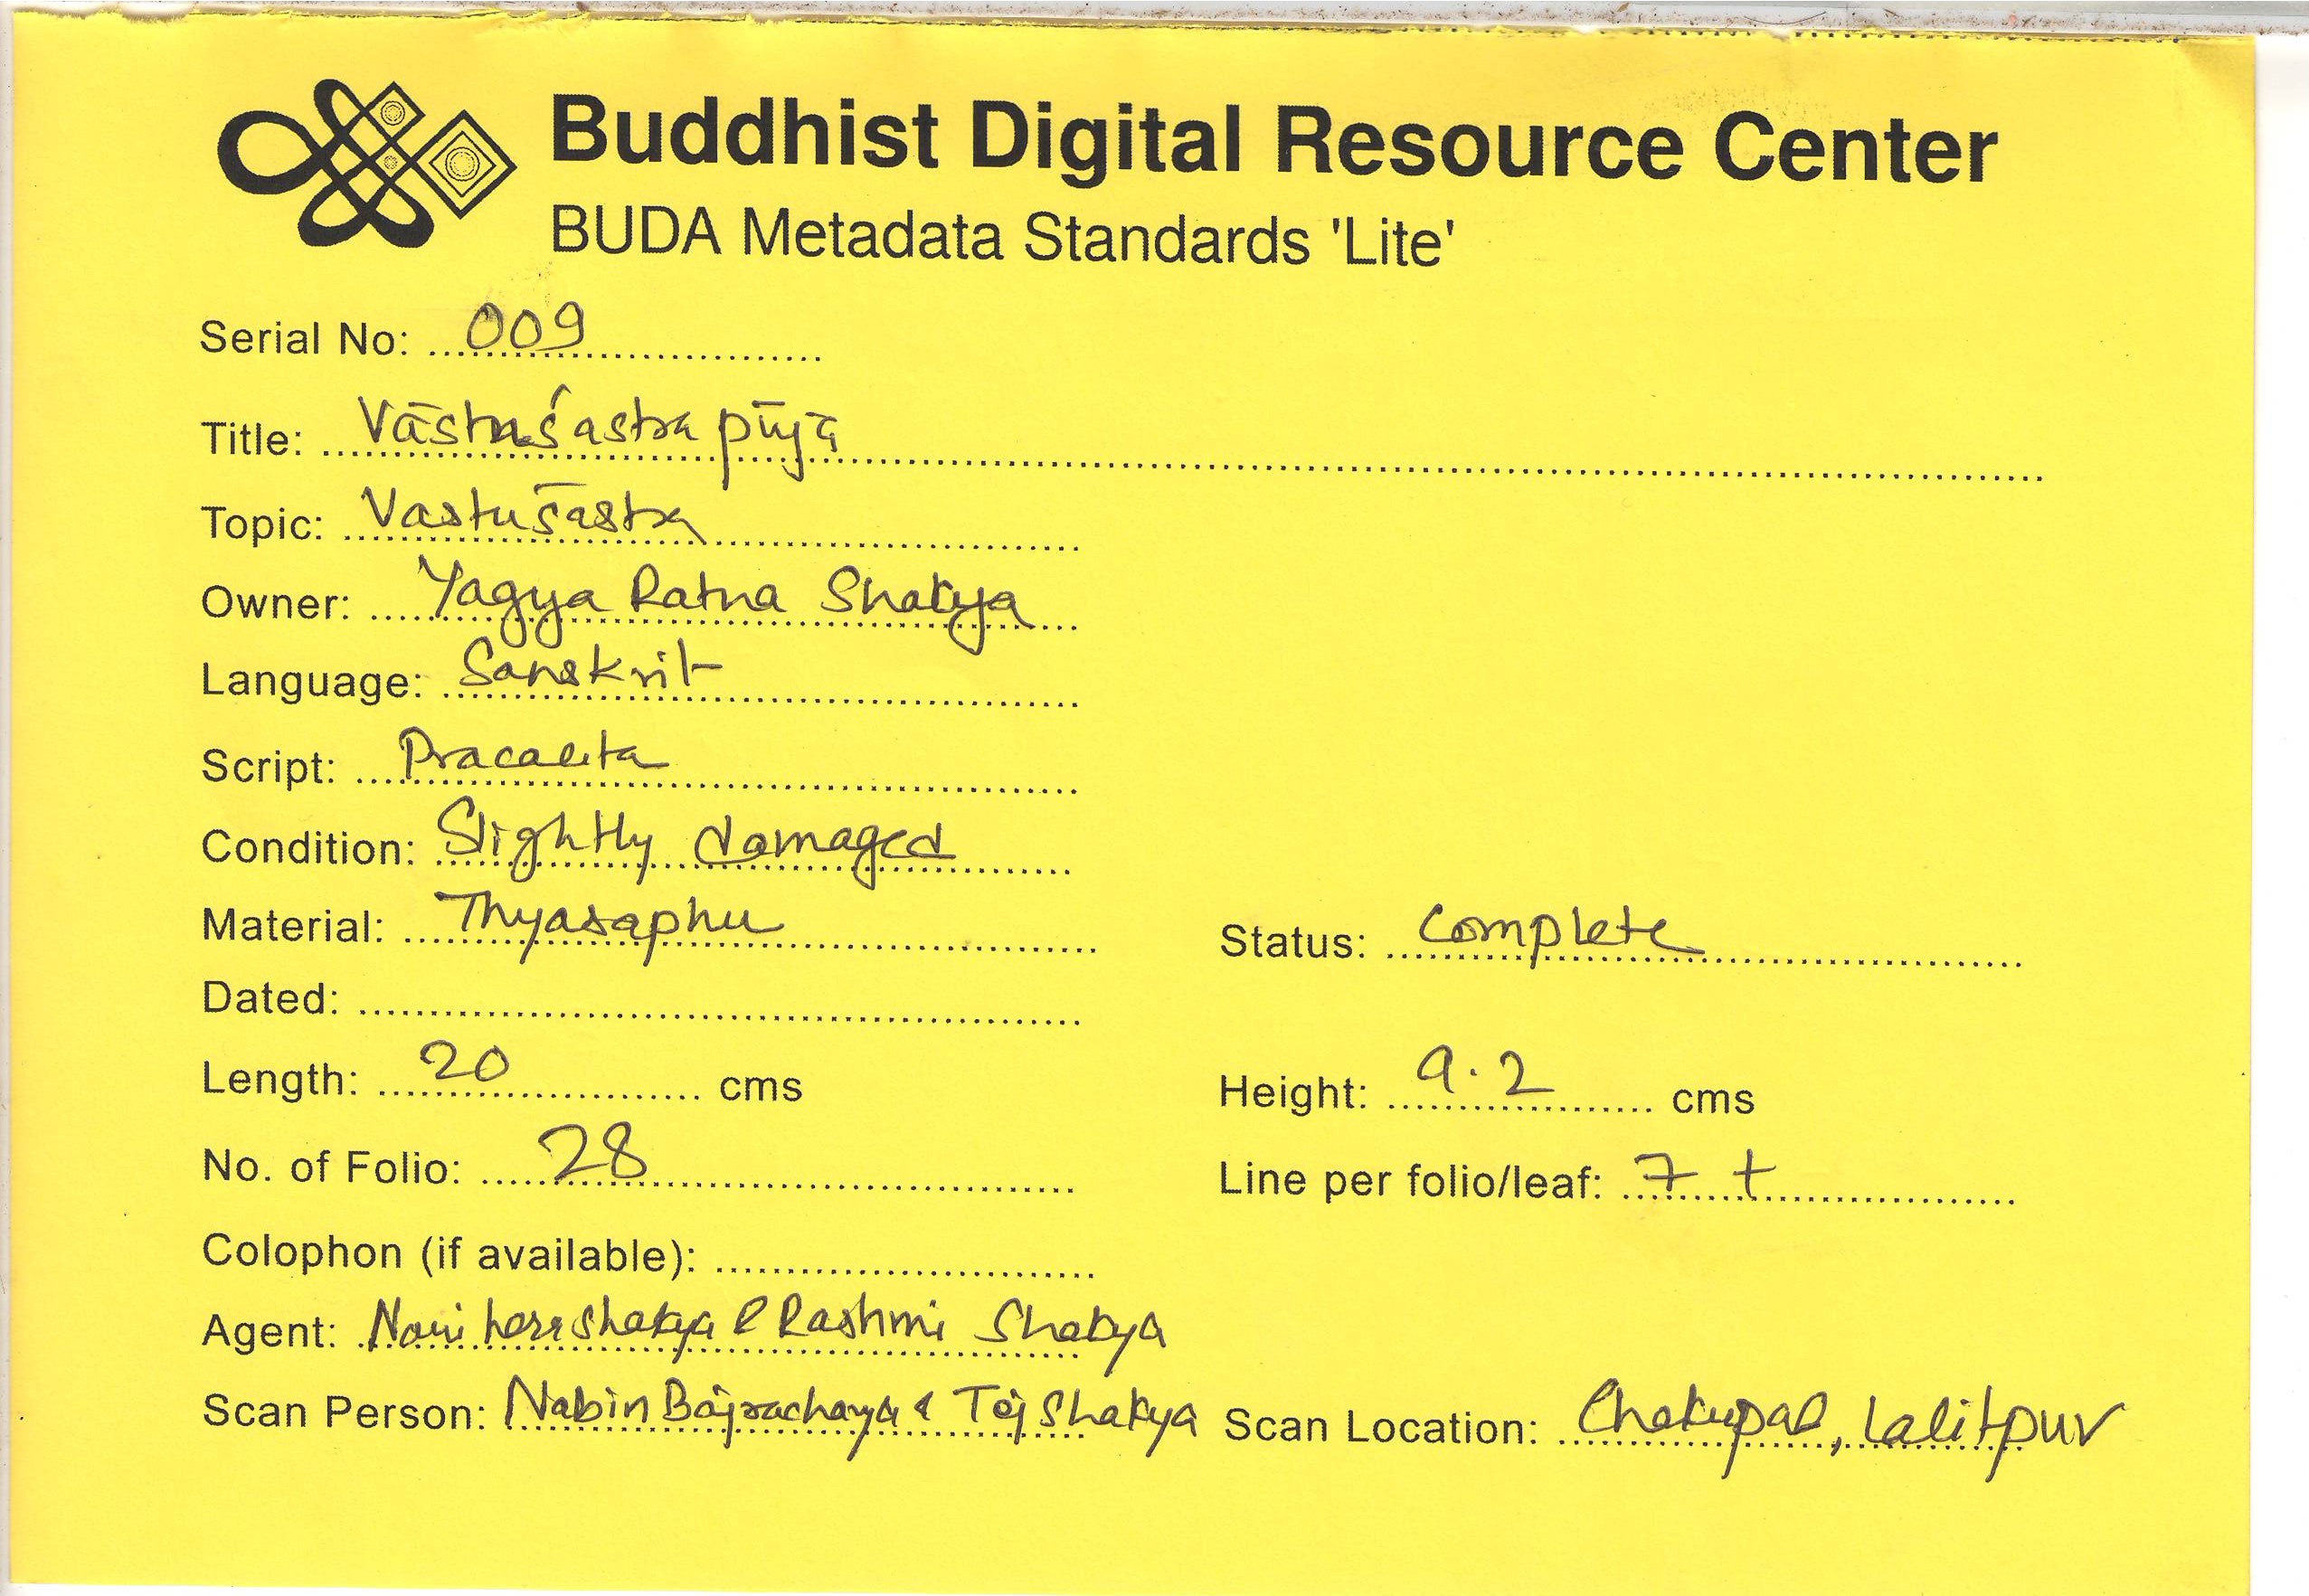 Buddhist Digital Resource Center
BUDA Metadata Standards 'Lite'
Serial No: 009
Title: Vāstuśastra pūjā
Topic: Vastuśāstra
Owner: Yagya Ratna Shakya
Language: Sanskrit
Script: Pracalita
Condition: Slightly damaged
Material: Thyasaphu Status: Complete
Dated:
Length: 20 cms Height: 9.2 cms
No. of Folio: 28 Line per folio/leaf: 7 +
Colophon (if available):
Agent: Shakya & Rashmi Shakya
Scan Person: Nabin Bajracharya & Tej Shakya Scan Location: Chakupal, Lalitpur